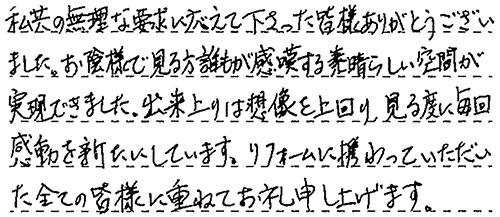 私共の無理な要求に応えて下さった皆様ありがとうござい
ました。お陰様で見る方誰もが感嘆する素晴らしい空間が
実現できました。出来上りは想像を上回り、見る度に毎回
感動を新たにしています。リフォームに携わっていただい
た全ての皆様に重ねてお礼申し上げます。